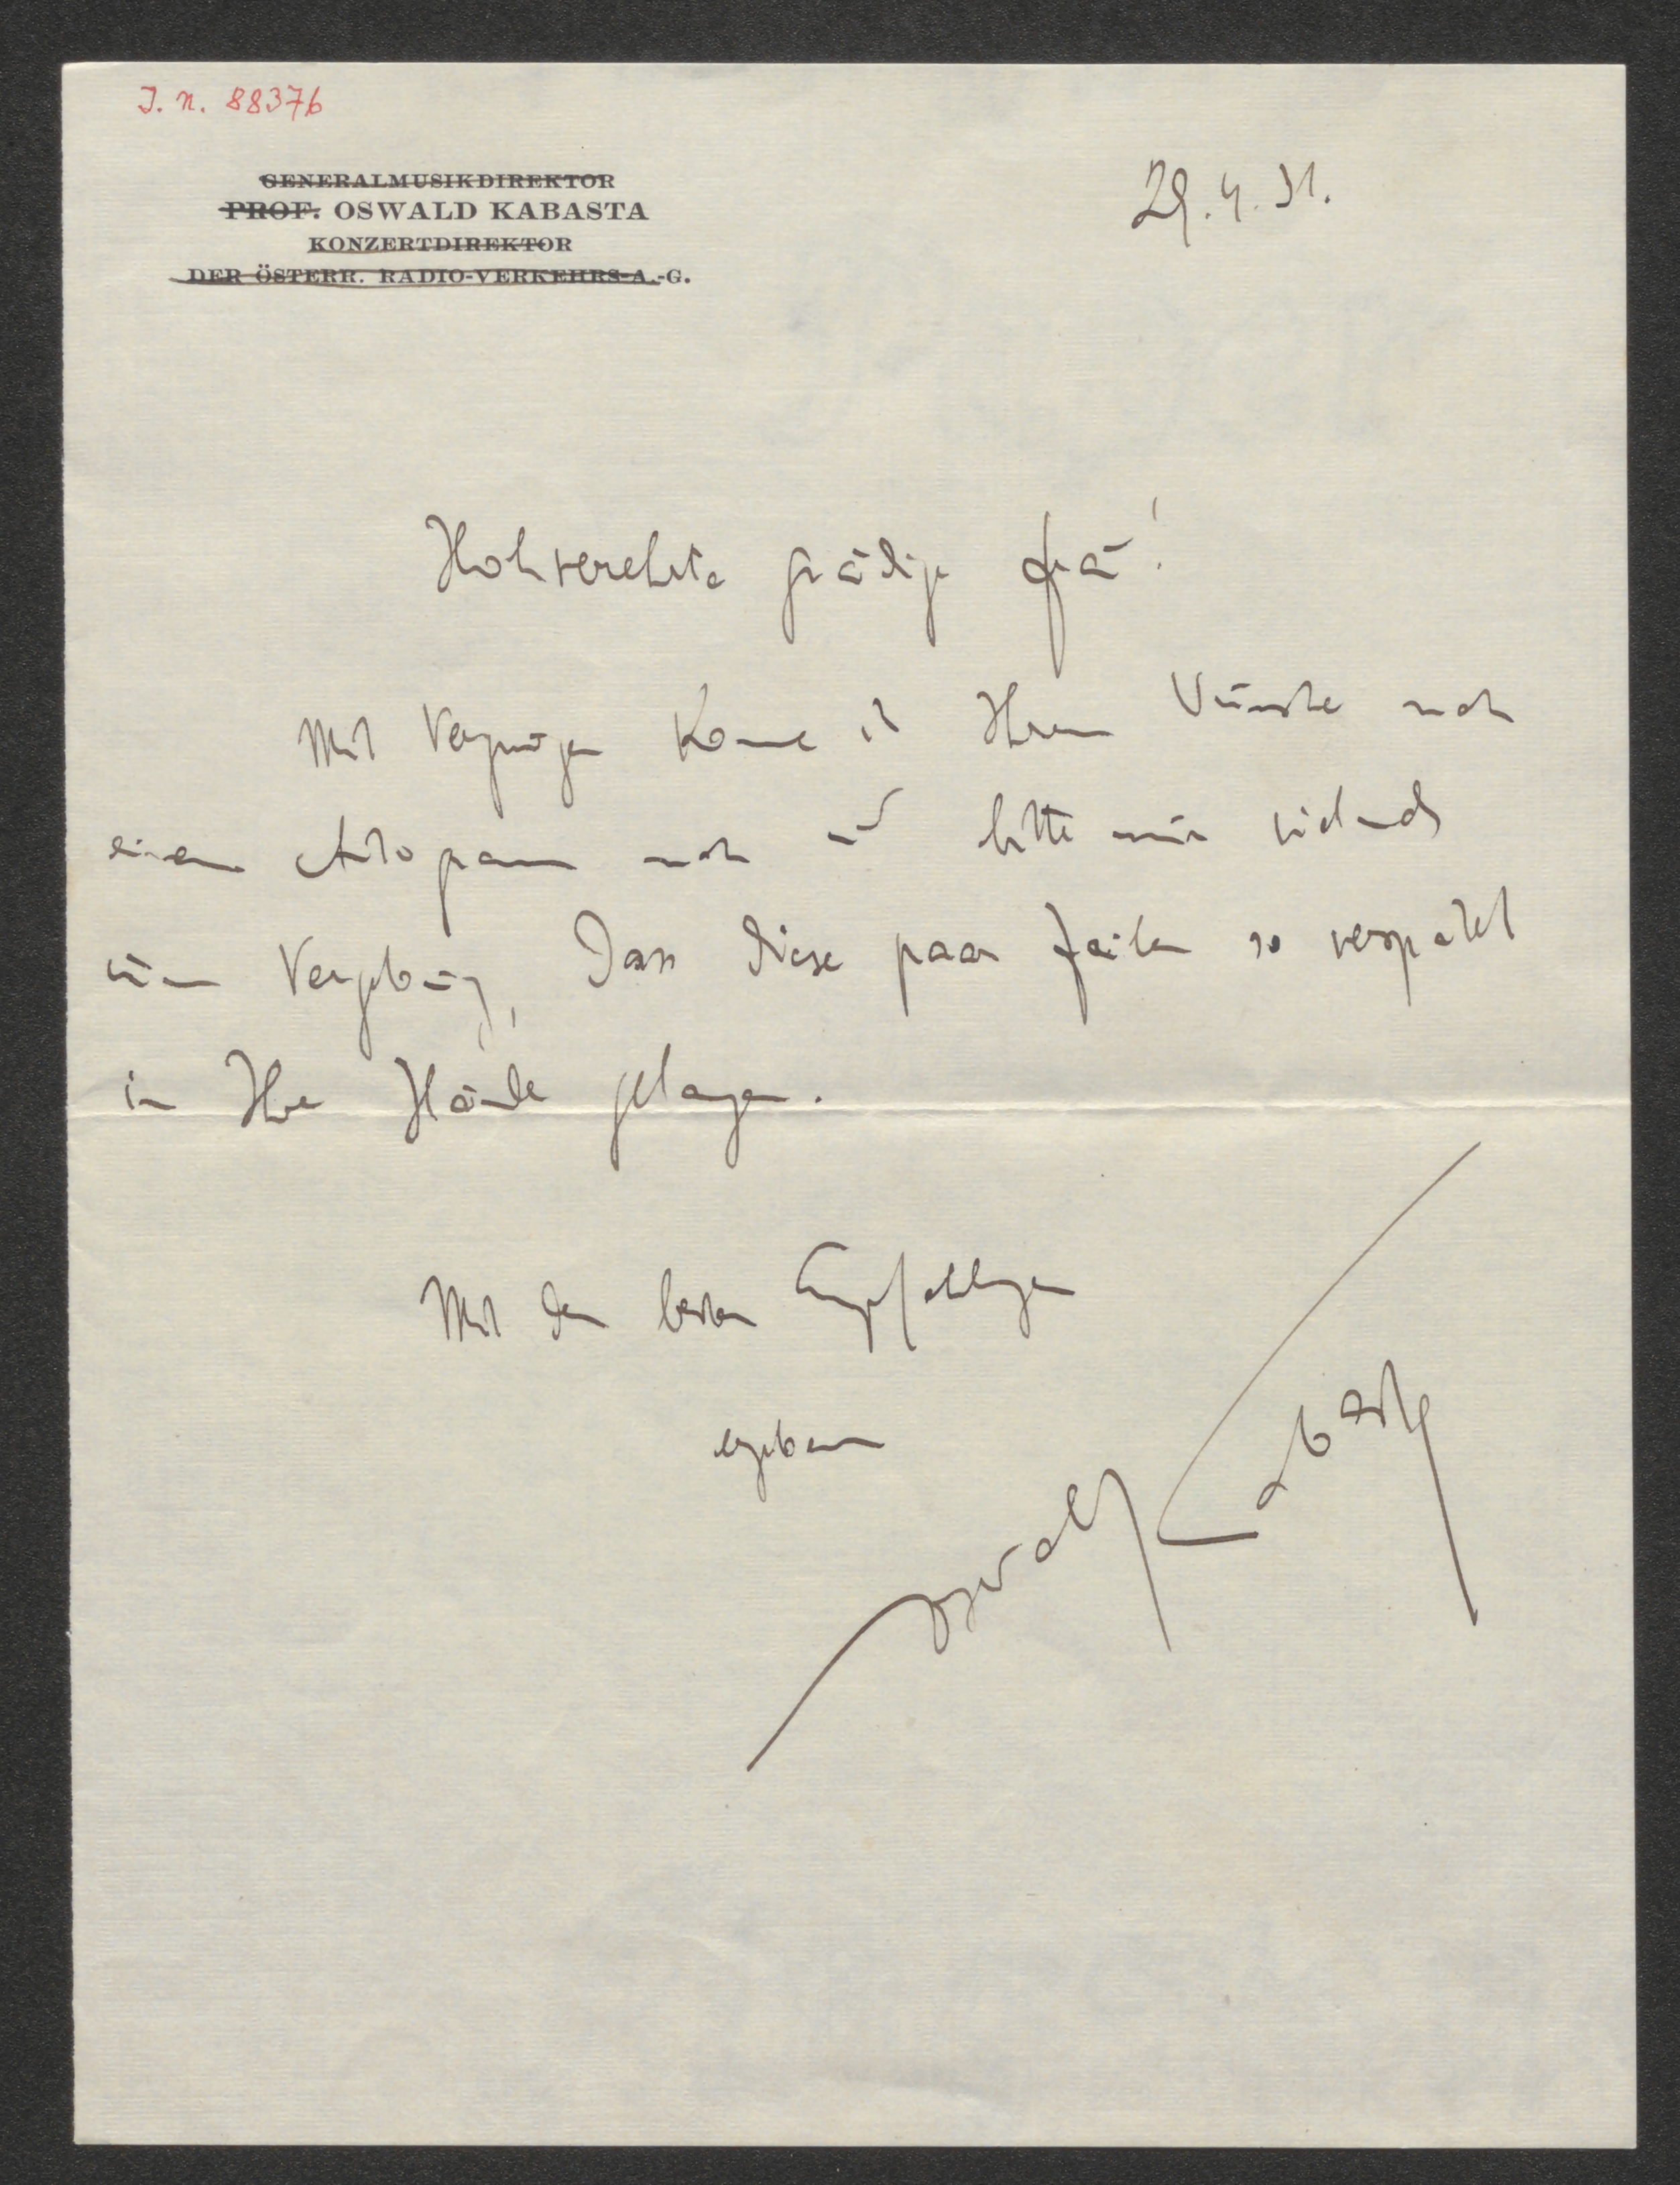 J. N. 88376
GENERALMUSIKDIREKTOR
PROF. OSWALD KABASTA
KONZERTDIREKTOR
DER ÖSTERR. RADIO-VERKEHRS-A.-G.
29.4.31.
Hochverehrte gnädige Frau!
Mit Vergnügen komme ich Ihrem Wunsche nach
einem Autogramm nach und bitte nur vielmals
um Vergebung, dass diese paar Zeilen so verspätet
in Ihre Hände gelangen.
Mit den besten Empfehlungen
ergebener
Oswald Kabasta